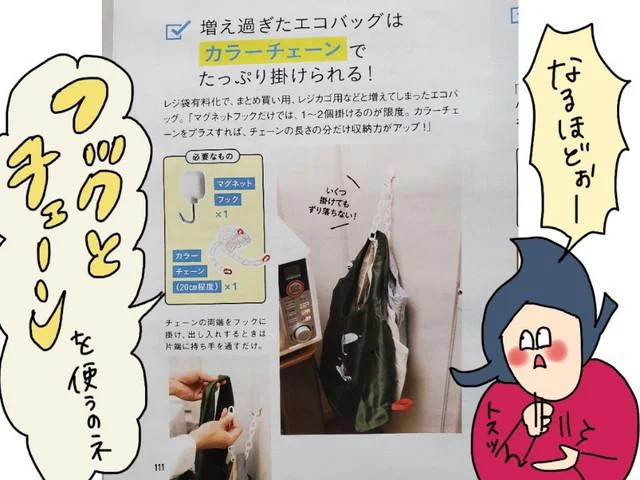 増え過ぎたエコバッグは
カラーチェーンで
たっぷり掛けられる！
レジ袋有料化で、まとめ買い用、レジカゴ用などと増えてしまったエコバ
ッグ。「マグネットフックだけでは、1〜2個掛けるのが限度。カラーチェ
ーンをプラスすれば、チェーンの長さの分だけ収納力がアップ！」
必要なもの
マグネット
フック
×1
カラー
チェーン
(20cm程度)×1
いくつ
掛けても
ずり落ちない！
チェーンの両端をフックに
掛け、出し入れするときは
片端に持ち手を通すだけ。
111
フックと
チェーン
を使うのネ
なるほどぉー
トスッ